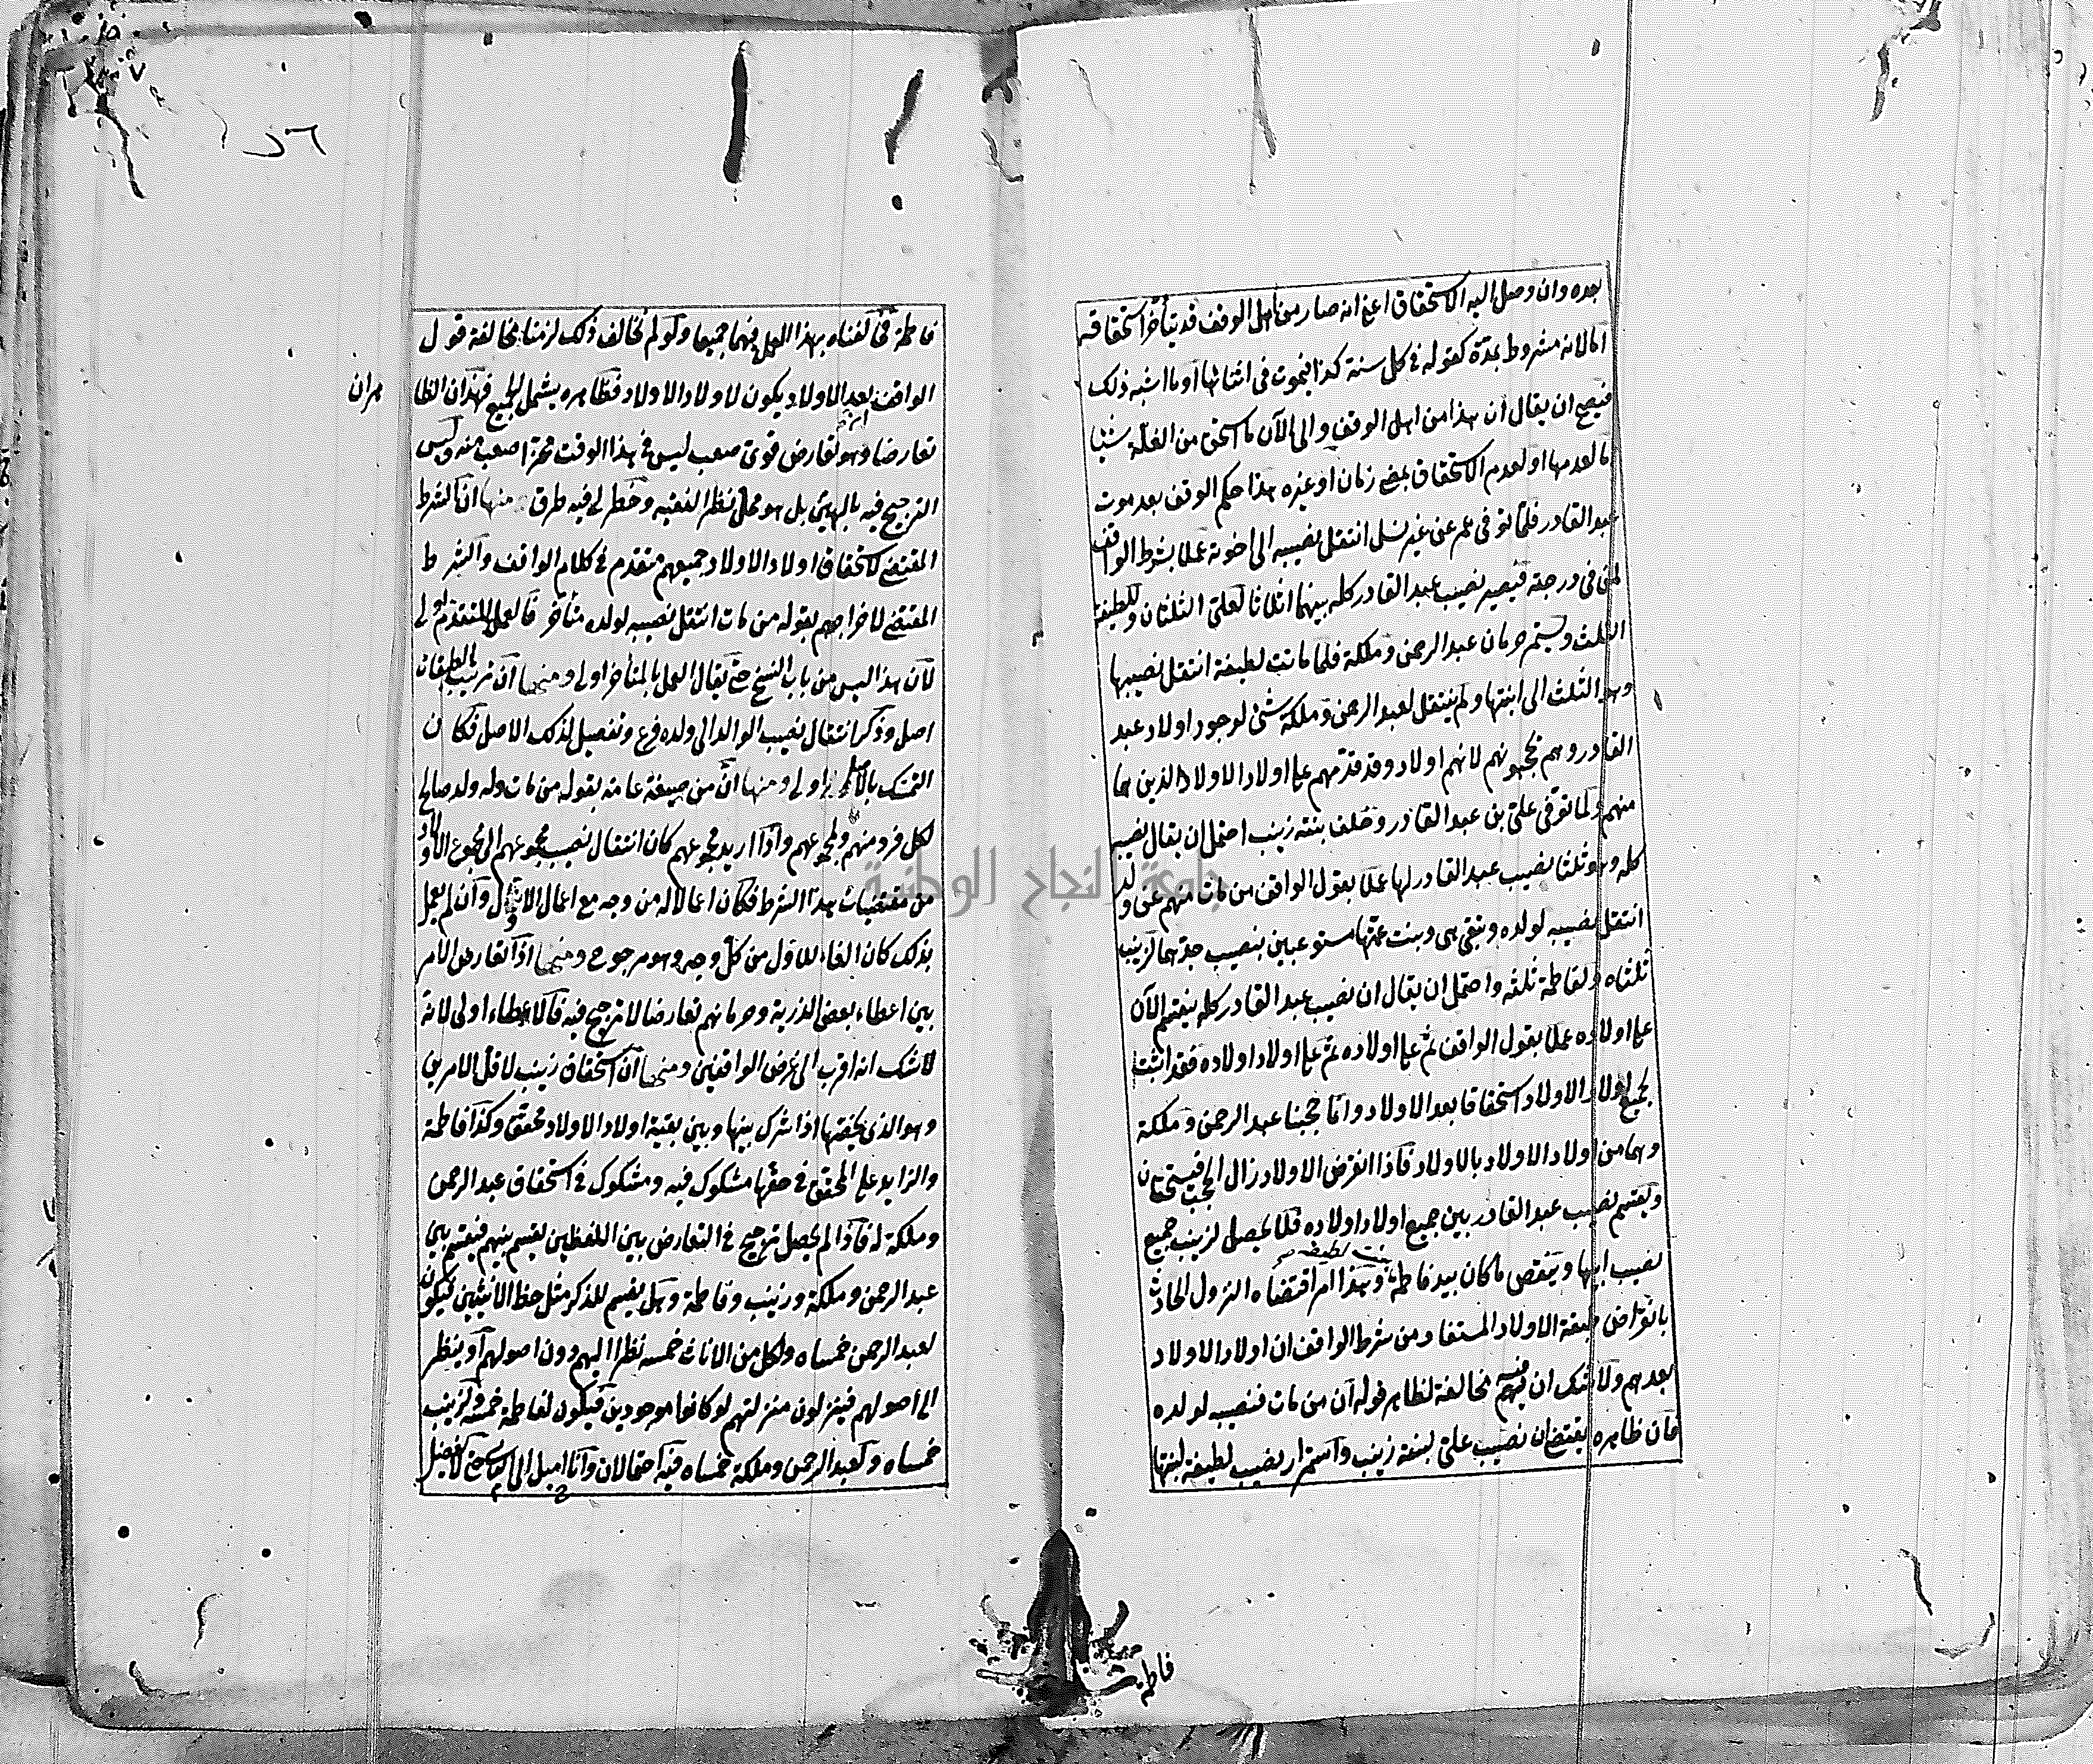 بعده وان وصل اليه الاستحقاق اعني انه صار من اهل الوقف قد يتأخر استحقاقه
اما لانه مشروط بمدة كقوله في كل سنة كذا فيموت في اثنائها او ما اشبه ذلك
فيصح ان يقال ان هذا من اهل الوقف والى الآن ما استحق من الغلة شيئا
اما لعدمها او لعدم الاستحقاق بمضي زمان او غيره هذا حكم الوقف بعد موت
عبد القادر فلما توفي عمر عن غير نسل انتقل نصيبه الى اخوته عملا بشرط الواقف
لمن في درجته فيصير نصيب عبد القادر كله بينهما اثلاثا لعلي الثلثان وللطيفة
الثلث ويستمر حرمان عبد الرحمن وملكة فلما ماتت لطيفة انتقل نصيبها
وهو الثلث الى ابنتها ولم ينتقل لعبد الرحمن وملكة شئ لوجود اولاد عبد
القادر وهم يحجبونهم لانهم اولاد وقد قدمهم على اولاد الاولاد الذين هما
منهم ولما توفي علي بن عبد القادر وخلف بنته زينب احتمل ان يقال نصيبه
كله وهو ثلثا نصيب عبد القادر لها عملا بقول الواقف من مات منهم عن ولد
انتقل نصيبه لولده وتبقى هي وبنت عمتها مستوعبين بنصيب جدهما لزينب
ثلثاه ولفاطمة ثلثه واحتمل ان يقال ان نصيب عبد القادر كله ينقسم الآن
على اولاده عملا بقول الواقف ثم على اولاده ثم على اولاد اولاده فقد اثبت
لجميع اولاد الاولاد استحقاقا بعد الاولاد وانما حجبنا عبد الرحمن وملكة
وهما من اولاد الاولاد بالاولاد فاذا انقرض الاولاد زال الحجب فيستحقان
ويقسم نصيب عبد القادر بين جميع اولاد اولاده فلا يحصل لزينب جميع
نصيب ابيها وينقص ما كان بيد فاطمة بنت لطيفة وهذا امر اقتضاه النزول الحادث
بانقراض طبقة الاولاد المستفاد من شرط الواقف ان اولاد الاولاد
بعدهم ولا شك ان فيه مخالفة لظاهر قوله ان من مات فنصيبه لولده
فان ظاهره يقتضي ان نصيب علي لبنته زينب واستمرار نصيب لطيفة لبنتها
فاطمة
٥٦
فاطمة فخالفناه بهذا العمل فيهما جميعا ولو لم نخالف ذلك لزمنا مخالفة قول
الواقف بعد الاولاد يكون لاولاد الاولاد فظاهره يشمل الجميع فهذان الظا
هران
تعارضا وهو تعارض قوي صعب ليس في هذا الوقت محز اصعب منه وليس
الترجيح فيه بالهين بل هو محل نظر الفقيه وخطر لي فيه طرق منها ان الشرط
المقتضي لاستحقاق اولاد الاولاد جميعهم متقدم في كلام الواقف والشرط
المقتضي لاخراجهم بقوله من مات انتقل نصيبه لولده متأخر فالعمل بالمتقدم اولى
لان هذا ليس من باب النسخ حتى يقال العمل بالمتأخر اولى ومنها ان ترتيب الطبقات
اصل وذكر انتقال نصيب الوالد الى ولده فرع وتفصيل لذلك الاصل فكان
التمسك بالاصل اولى ومنها ان من صيغة عامة بقوله من مات وله ولد صالح
لكل فرد منهم ولمجموعهم واذا اريد مجموعهم كان انتقال نصيب مجموعهم الى مجموع الاولاد
من مقتضيات هذا الشرط فكان اعمالا له من وجه مع اعمال الاول وان لم يعمل
بذلك كان الغاء للاول من كل وجه وهو مرجوح ومنها اذا تعارض الامر
بين اعطاء بعض الذرية وحرمانهم تعارضا لا ترجيح فيه فالاعطاء اولى لانه
لا شك انه اقرب الى غرض الواقفين ومنها ان استحقاق زينب لاقل الامرين
وهو الذي يخصها اذا شرك بينها وبين بقية اولاد الاولاد محقق وكذا فاطمة
والزايد على المحقق في حقها مشكوك فيه ومشكوك في استحقاق عبد الرحمن
وملكة له فاذا لم يحصل ترجيح في التعارض بين اللفظين يقسم بينهم فيقسم بين
عبد الرحمن وملكة وزينب وفاطمة وهل يقسم للذكر مثل حظ الانثيين فيكون
لعبد الرحمن خمساه ولكل من الاناث خمسه نظرا اليهم دون اصولهم او ينظر
الى اصولهم فينزلون منزلتهم لو كانوا موجودين فيكون لفاطمة خمسه ولزينب
خمساه ولعبد الرحمن وملكة خمساه فيه احتمالان وانا اميل الى الثاني حتى لا يفضل
جامعة النجاح الوطنية